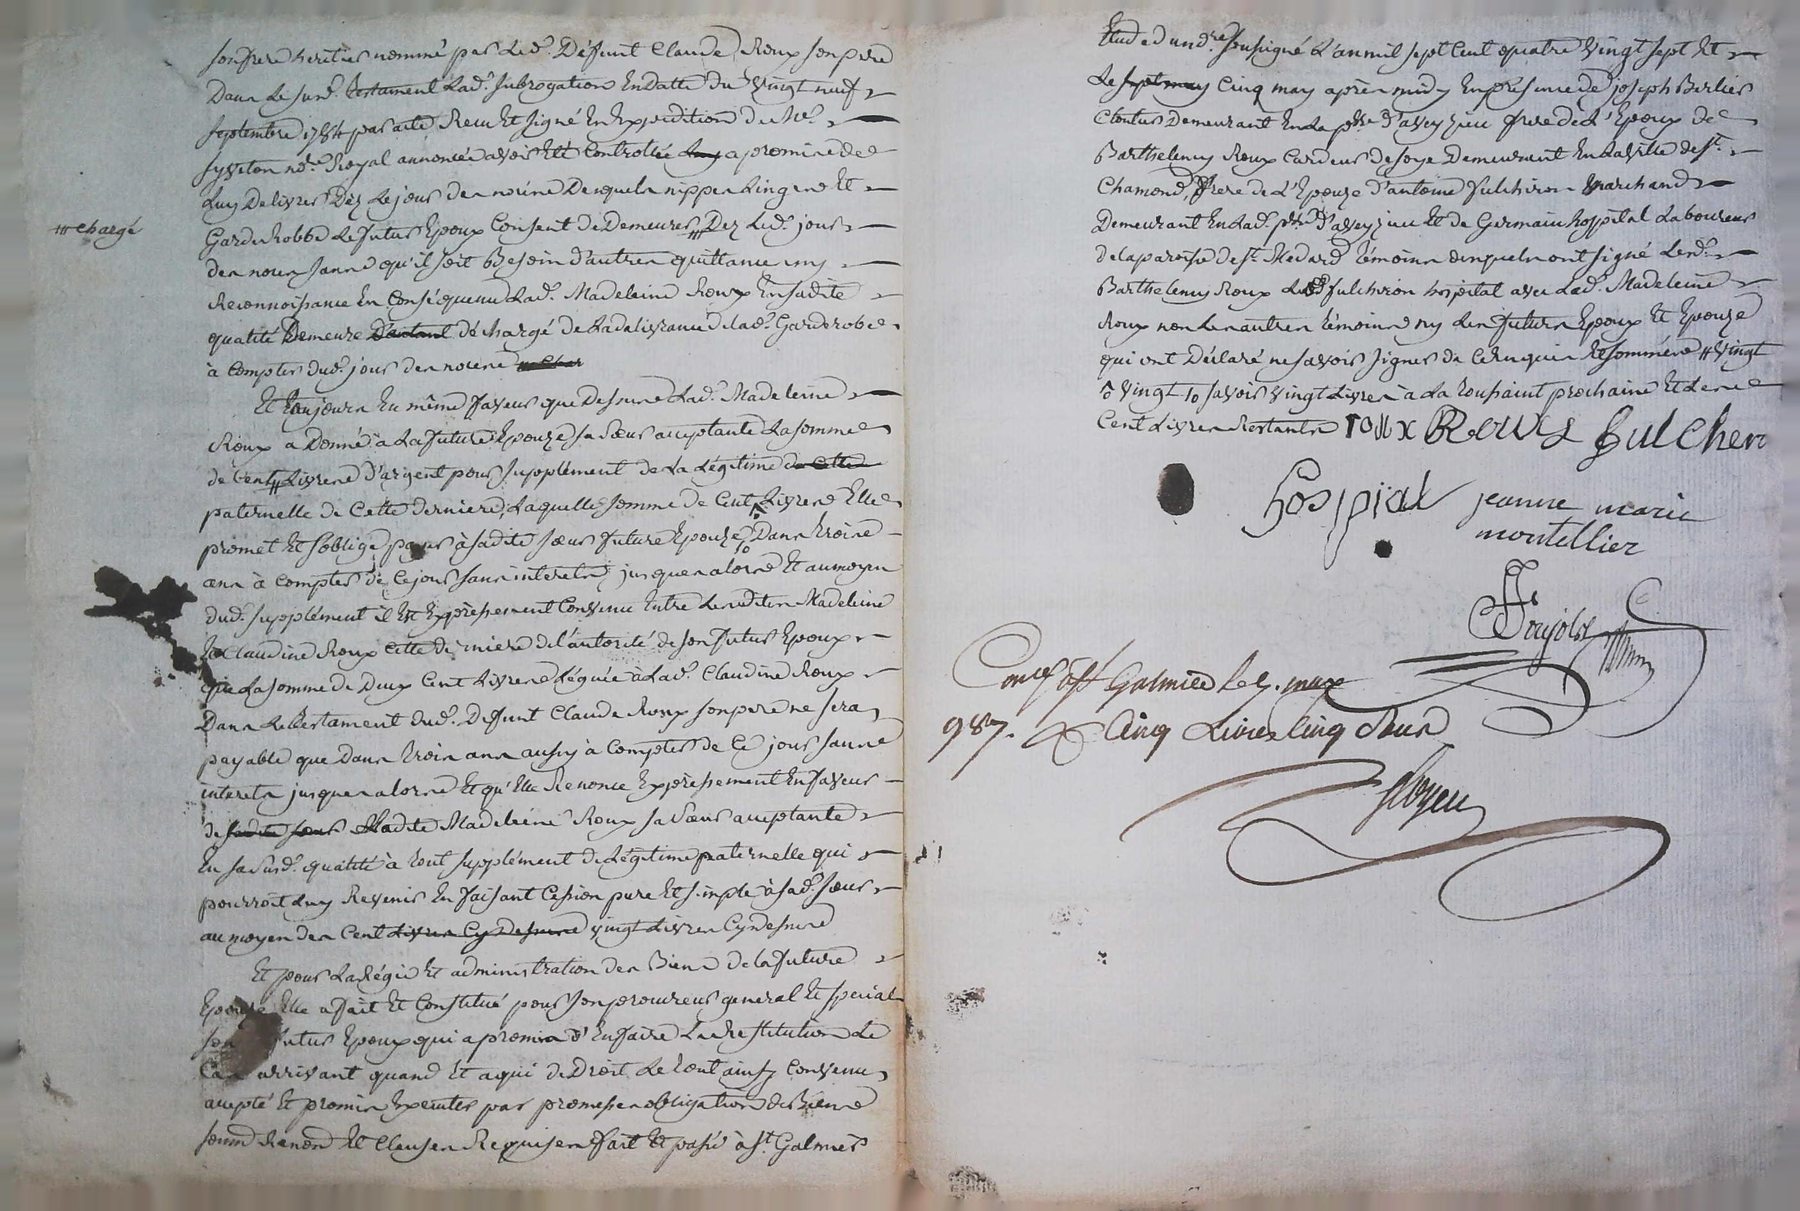 son frere heritier nommé par led. Défunt Claude Roux son pere
Dans le susd. testament lad. subrogation En Datte du Vingt neuf
septembre 1784 par acte Recu Et signé En Expedition du Me.
nore. Royal annoncée avoir Eté Controllée a promis de
luy Delivrer Dez le jour des noces Desquels nippes linges Et
Garderobbe le futur Epoux Consent de Demeurer /// Dez led. jour
/// chargé
des noces sans qu'il soit Besoin d'autres quittance ny
Reconnoissance En Conséquence lad. Madeleine Roux En sadite
qualité Demeure D'autant déchargé de la délivrance de lad. Garderobe
à Compter dud. jour des noces
Et toujours En même faveur que Dessus lad. Madeleine
Roux a Donné à la future Epouze sa sœur acceptante la somme
de Cent // Livres d'argent pour supplément de la légitime de cette
paternelle de Cette derniere, laquelle somme de Cent Livres Elle
promet Et s'oblige payer à sadite sœur future Epouze Dans trois
ans à Compter de Ce jour sans interets jusques alors Et au moyen
dud. supplément il Est Expressement Convenu Entre lesdites Madeleine
Et Claudine Roux Cette derniere de l'autorité de son futur Epoux
que la somme de Deux Cent Livres léguée à lad. Claudine Roux
Dans le testament dud. Defunt Claude Roux son pere ne sera
payable que Dans trois ans aussy à Compter de Ce jour sans
interets jusques alors Et qu'Elle Renonce Expressement En faveur
de sadite sœur ladite Madeleine Roux sa sœur acceptante
En sa susd. qualité à tout supplément de légitime paternelle qui
pourroit luy Revenir En faisant Cession pure Et simple à sad. sœur
au moyen des Cent Livres Cy Dessus vingt Livres Cy Dessus
Et pour la Régie Et administration des Biens de la future
Epouze Elle a fait Et Constitué pour son procureur general Et special
son futur Epoux qui a promis d'En faire la Restitution le
Cas arrivant quand Et a qui de Droit le tout ainsy Convenu,
accepté Et promis Executer par promesses obligation de Biens
soum. Renon. Et Clauses Requises fait Et passé à St. Galmier
Etude du nore. soussigné L'an mil sept Cent quatre Vingt sept Et
le sept may Cinq may après midy En présence de joseph Berlier
Demeurant En la psse. d'aveyzieu frere de l'Epoux de
Barthelemy Roux Cardeur de soye Demeurant En la ville de St.
Chamond, frere de l'Epouze d'antoine fulchiron Marchand
Demeurant En lad. psse. d'aveyzieu Et de Germain hospital Laboureur
de la paroisse de St. Medard témoins desquels ont signé led.
Barthelemy Roux fulchiron hospital avec lad. Madeleine
Roux non les autres témoins ny les futurs Epoux Et Epouze
qui ont Déclaré ne savoir signer de Ce Enquis Et sommés // Vingt
o Vingt 10 savoir vingt Livres à la toussaint prochaine Et les
Cent Livres Restants roux Roux fulcheron
hospital jeanne marie
montellier
Pujolx
Conlé. à St. Galmier le 9. may
987. R Cinq Livres Cinq sous